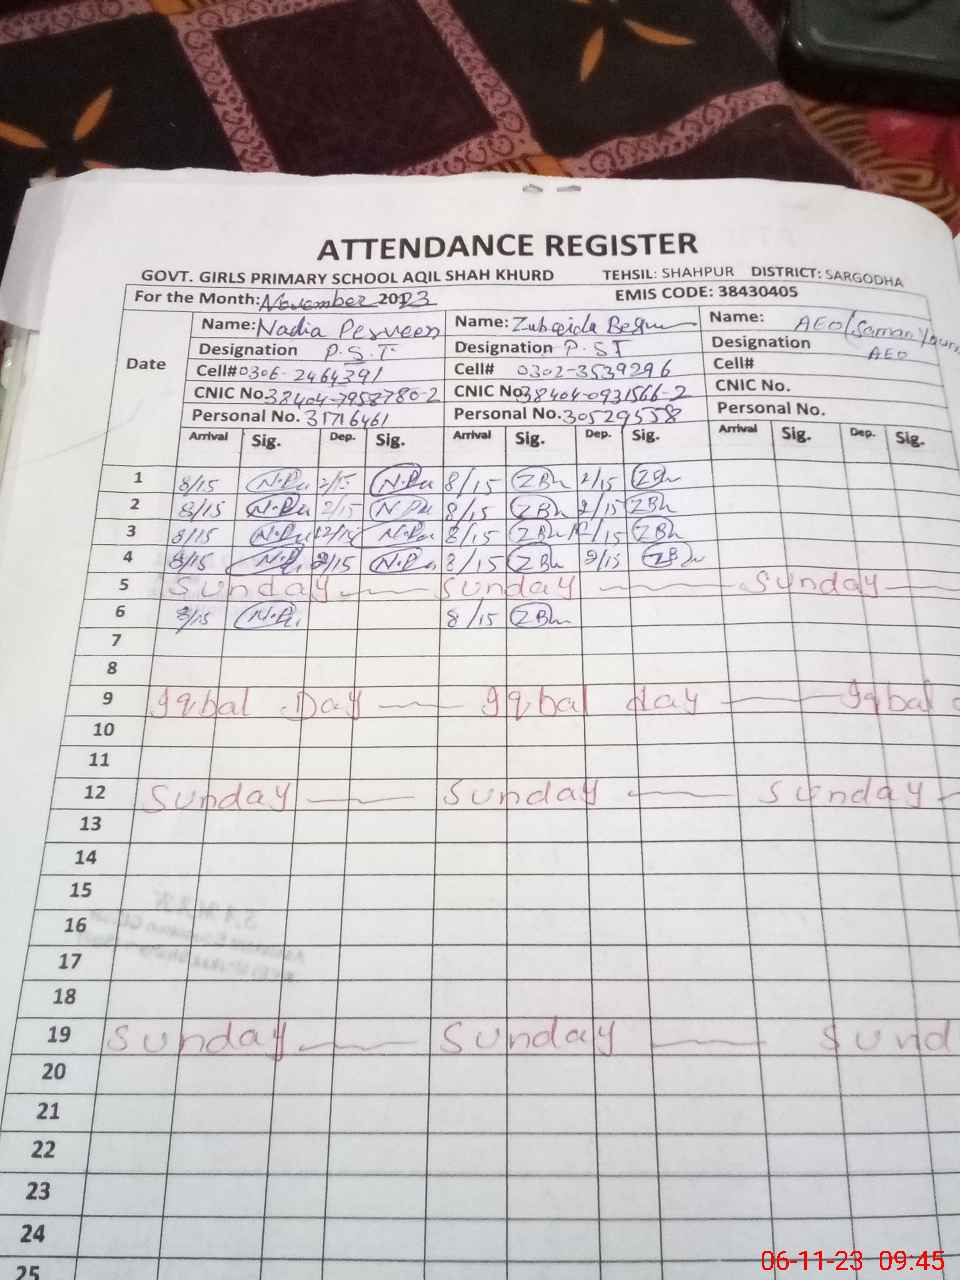 ATTENDANCE REGISTER
GOVT. GIRLS PRIMARY SCHOOL AQIL SHAH KHURD TEHSIL: SHAHPUR DISTRICT: SARGODHA
For the Month: November 2023 EMIS CODE: 38430405
Date
Name: Nadia Perveen Name: Zubaida Begum Name: AEO (Saman
Designation P.S.T. Designation P.ST Designation AEO
Cell# 0306-2464391 Cell# 0302-3539296 Cell#
CNIC No. 38404-7958780-2 CNIC No. 38404-0931566-2 CNIC No.
Personal No. 31716461 Personal No. 30529558 Personal No.
Arrival Sig. Dep. Sig. Arrival Sig. Dep. Sig. Arrival Sig. Dep. Sig.
1 8/15 N.Pu 2/15 N.Pu 8/15 ZBh 2/15 ZBh
2 8/15 N.Pu 2/15 N.Pu 8/15 ZBh 2/15 ZBh
3 8/15 N.Pu 12/15 N.Pu 8/15 ZBh 12/15 ZBh
4 8/15 N.Pu 2/15 N.Pu 8/15 ZBh 2/15 ZBh
5 Sunday Sunday Sunday
6 8/15 N.Pu 8/15 ZBh
7
8
9 Iqbal Day Iqbal day Iqbal
10
11
12 Sunday Sunday Sunday
13
14
15
16
17
18
19 Sunday Sunday Sund
20
21
22
23
24
25
06-11-23 09:45